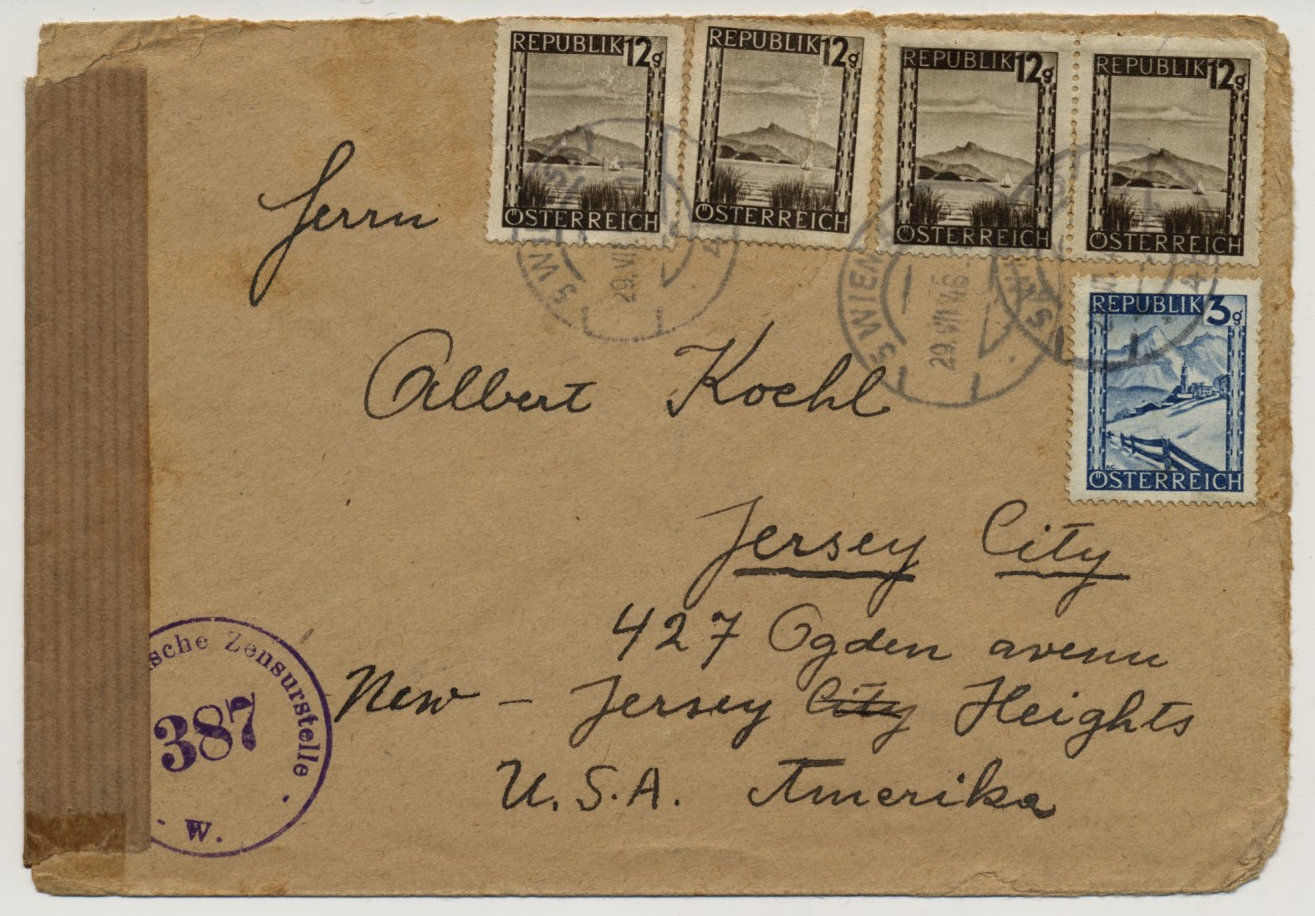 REPUBLIK 12g
ÖSTERREICH
REPUBLIK 12g
ÖSTERREICH
REPUBLIK 12g
ÖSTERREICH
REPUBLIK 12g
ÖSTERREICH
REPUBLIK 3g
ÖSTERREICH
WIEN
29.VII.46
Herrn
Albert Koehl
Jersey City
427 Ogden avenu
New - Jersey City Heights
U.S.A. Amerika
sche Zensurstelle
387
W.